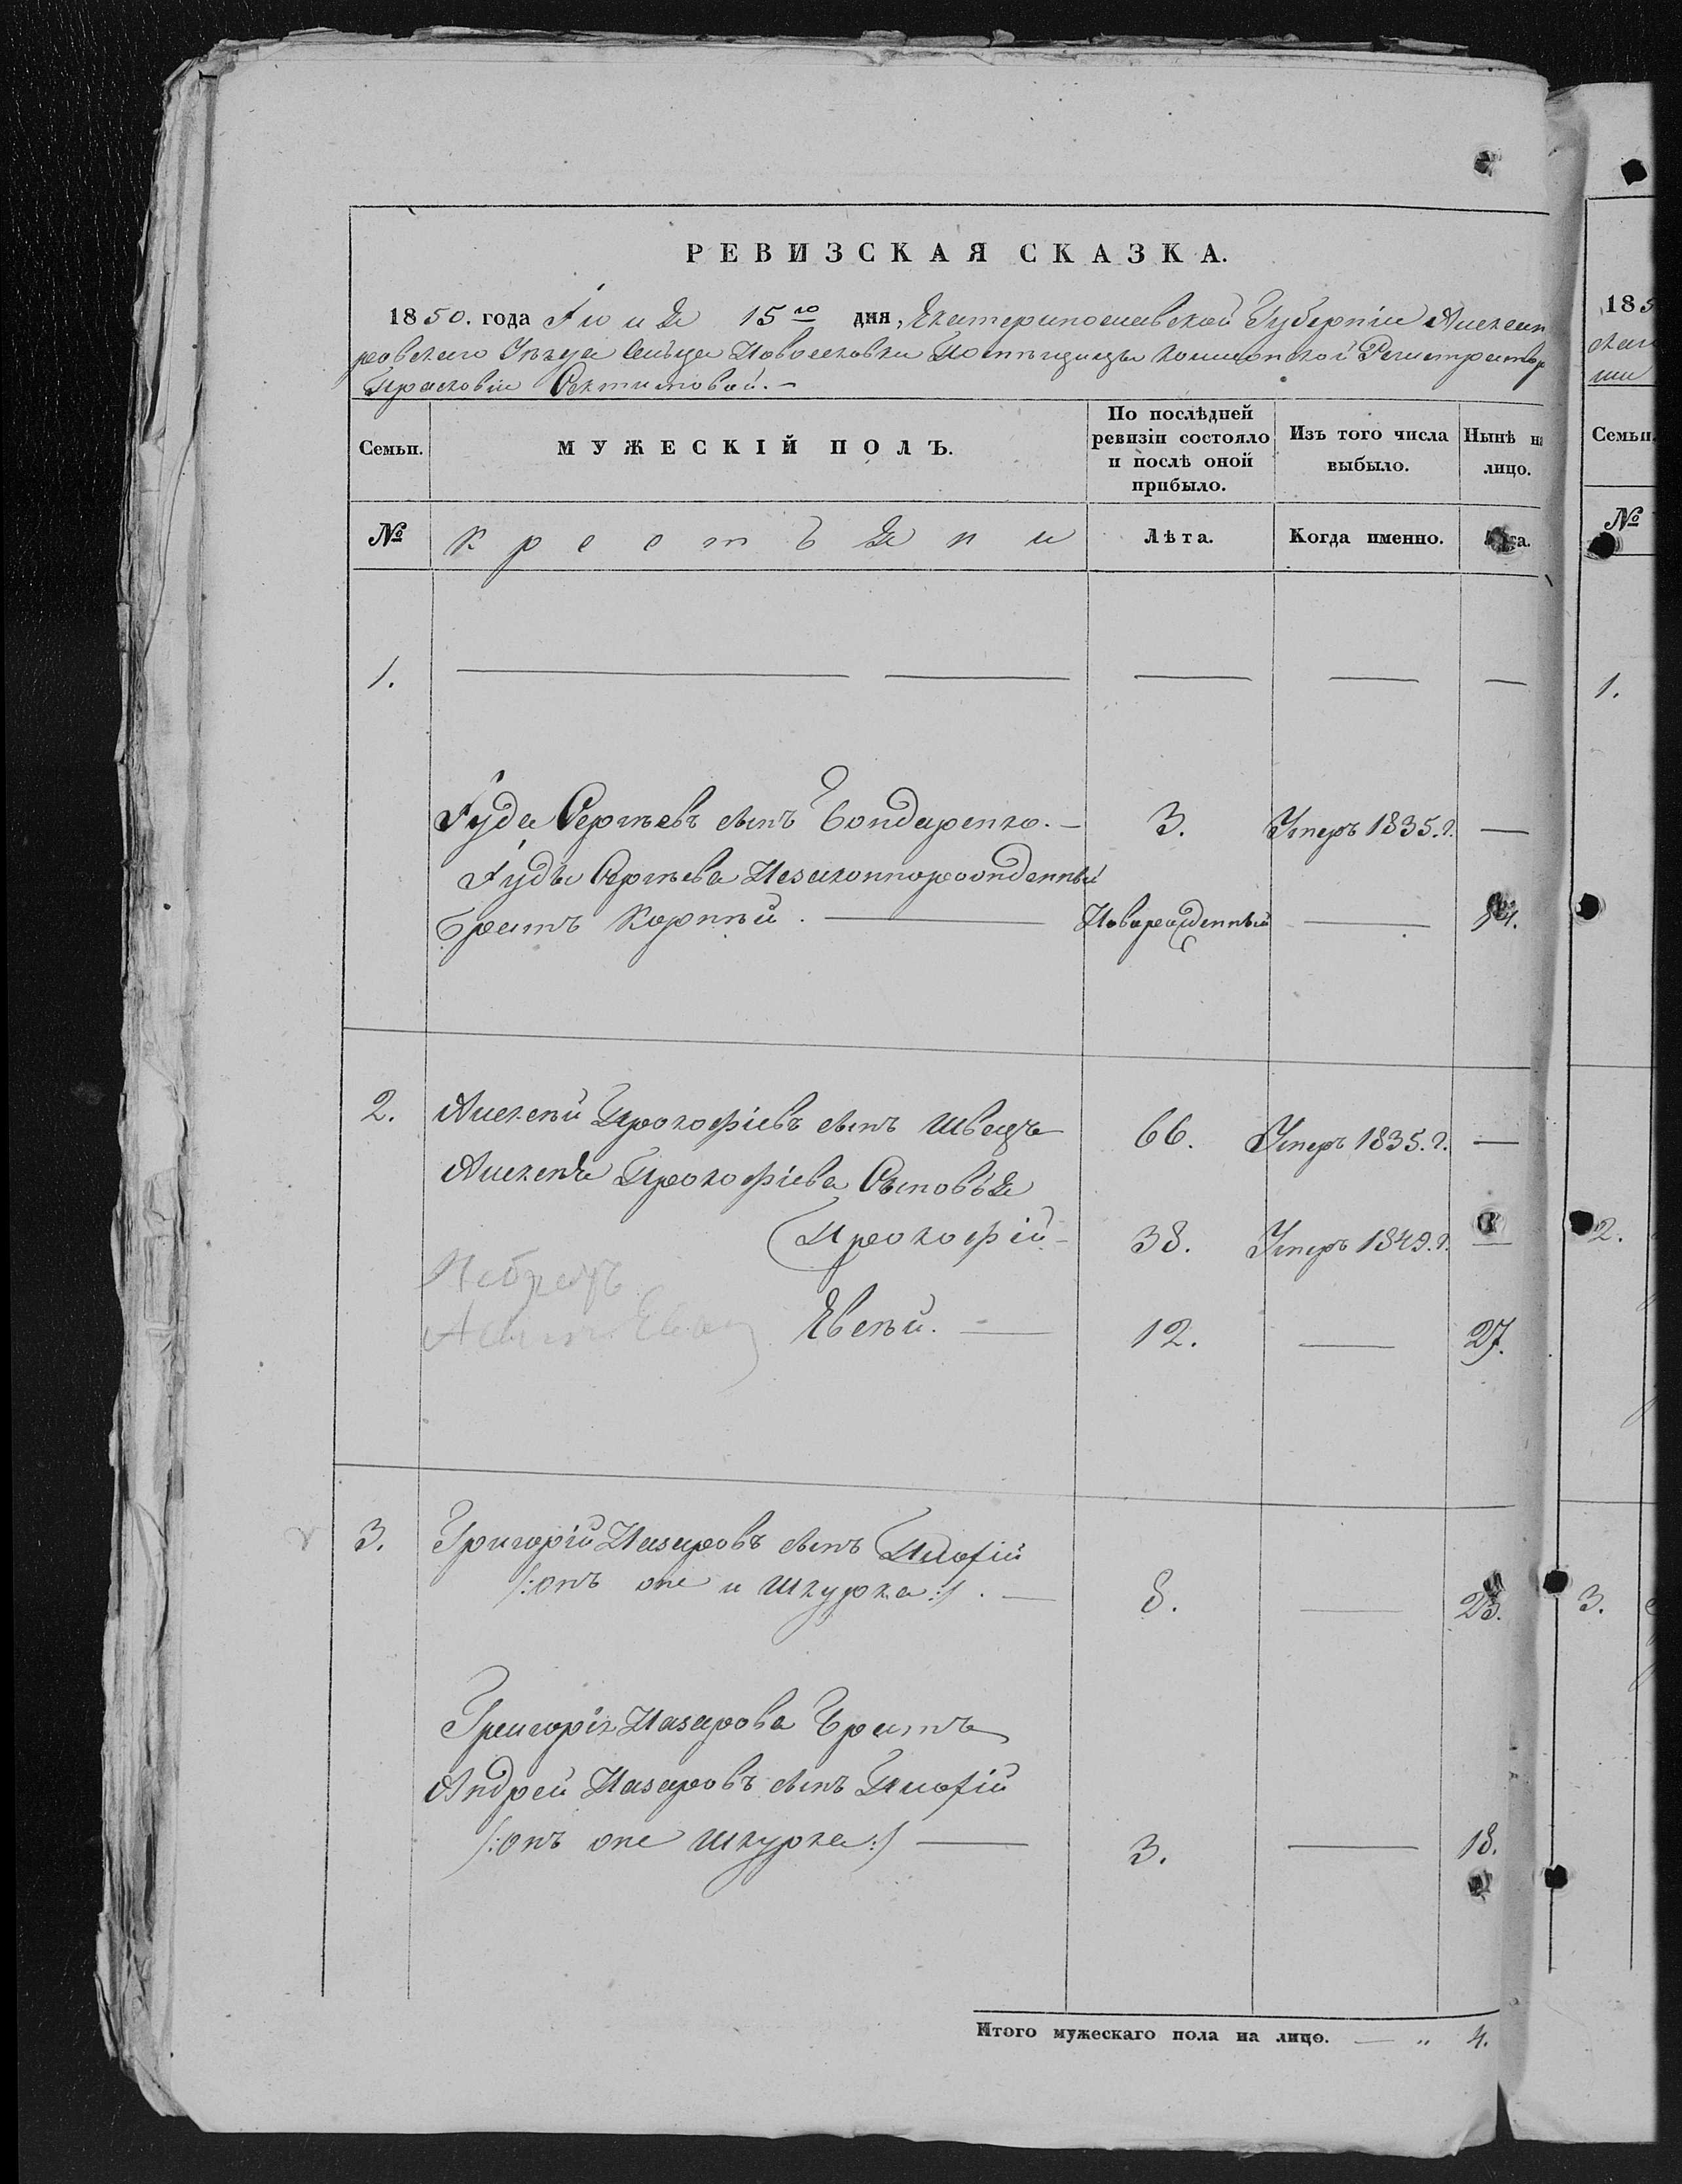 РЕВИЗСКАЯ СКАЗКА.
1850. года Іюня 15го дня, Екатеринославской Губерніи Алексан
ровскаго Уѣзда Сельца Новоселовки Помѣщицы Колежской Регистратор
Прасковіи
Семьи. МУЖЕСКІЙ ПОЛЪ. По послѣдней ревизіи состояло и послѣ оной прибыло. Изъ того числа выбыло. Нынѣ на лицо.
№ Крестьяни Лѣта. Когда именно.
1.
Іуда Сергѣевъ сынъ Бондаренко. 3. Умеръ 1835. г.
Іуды Сергѣева Незаконнорожденный
братъ Корнѣй. Новорожденный
2. Алексѣй Прокофіевъ сынъ Швецъ 66. Умеръ 1835. г.
Алексѣя Прокофіева Сыновья
Прокофій 38. Умеръ 1849. г.
Евсѣй. 12. 27.
3. Григорій Назаровъ сынъ
/:онъ же и Шкурка:/. 8. 23.
Григорія Назарова братъ
Андрей Назаровъ сынъ
/:онъ же Шкурка:/ 3. 18.
Итого мужескаго пола на лицо. — „ 4.
185
Семьи.
№
1.
2.
3.